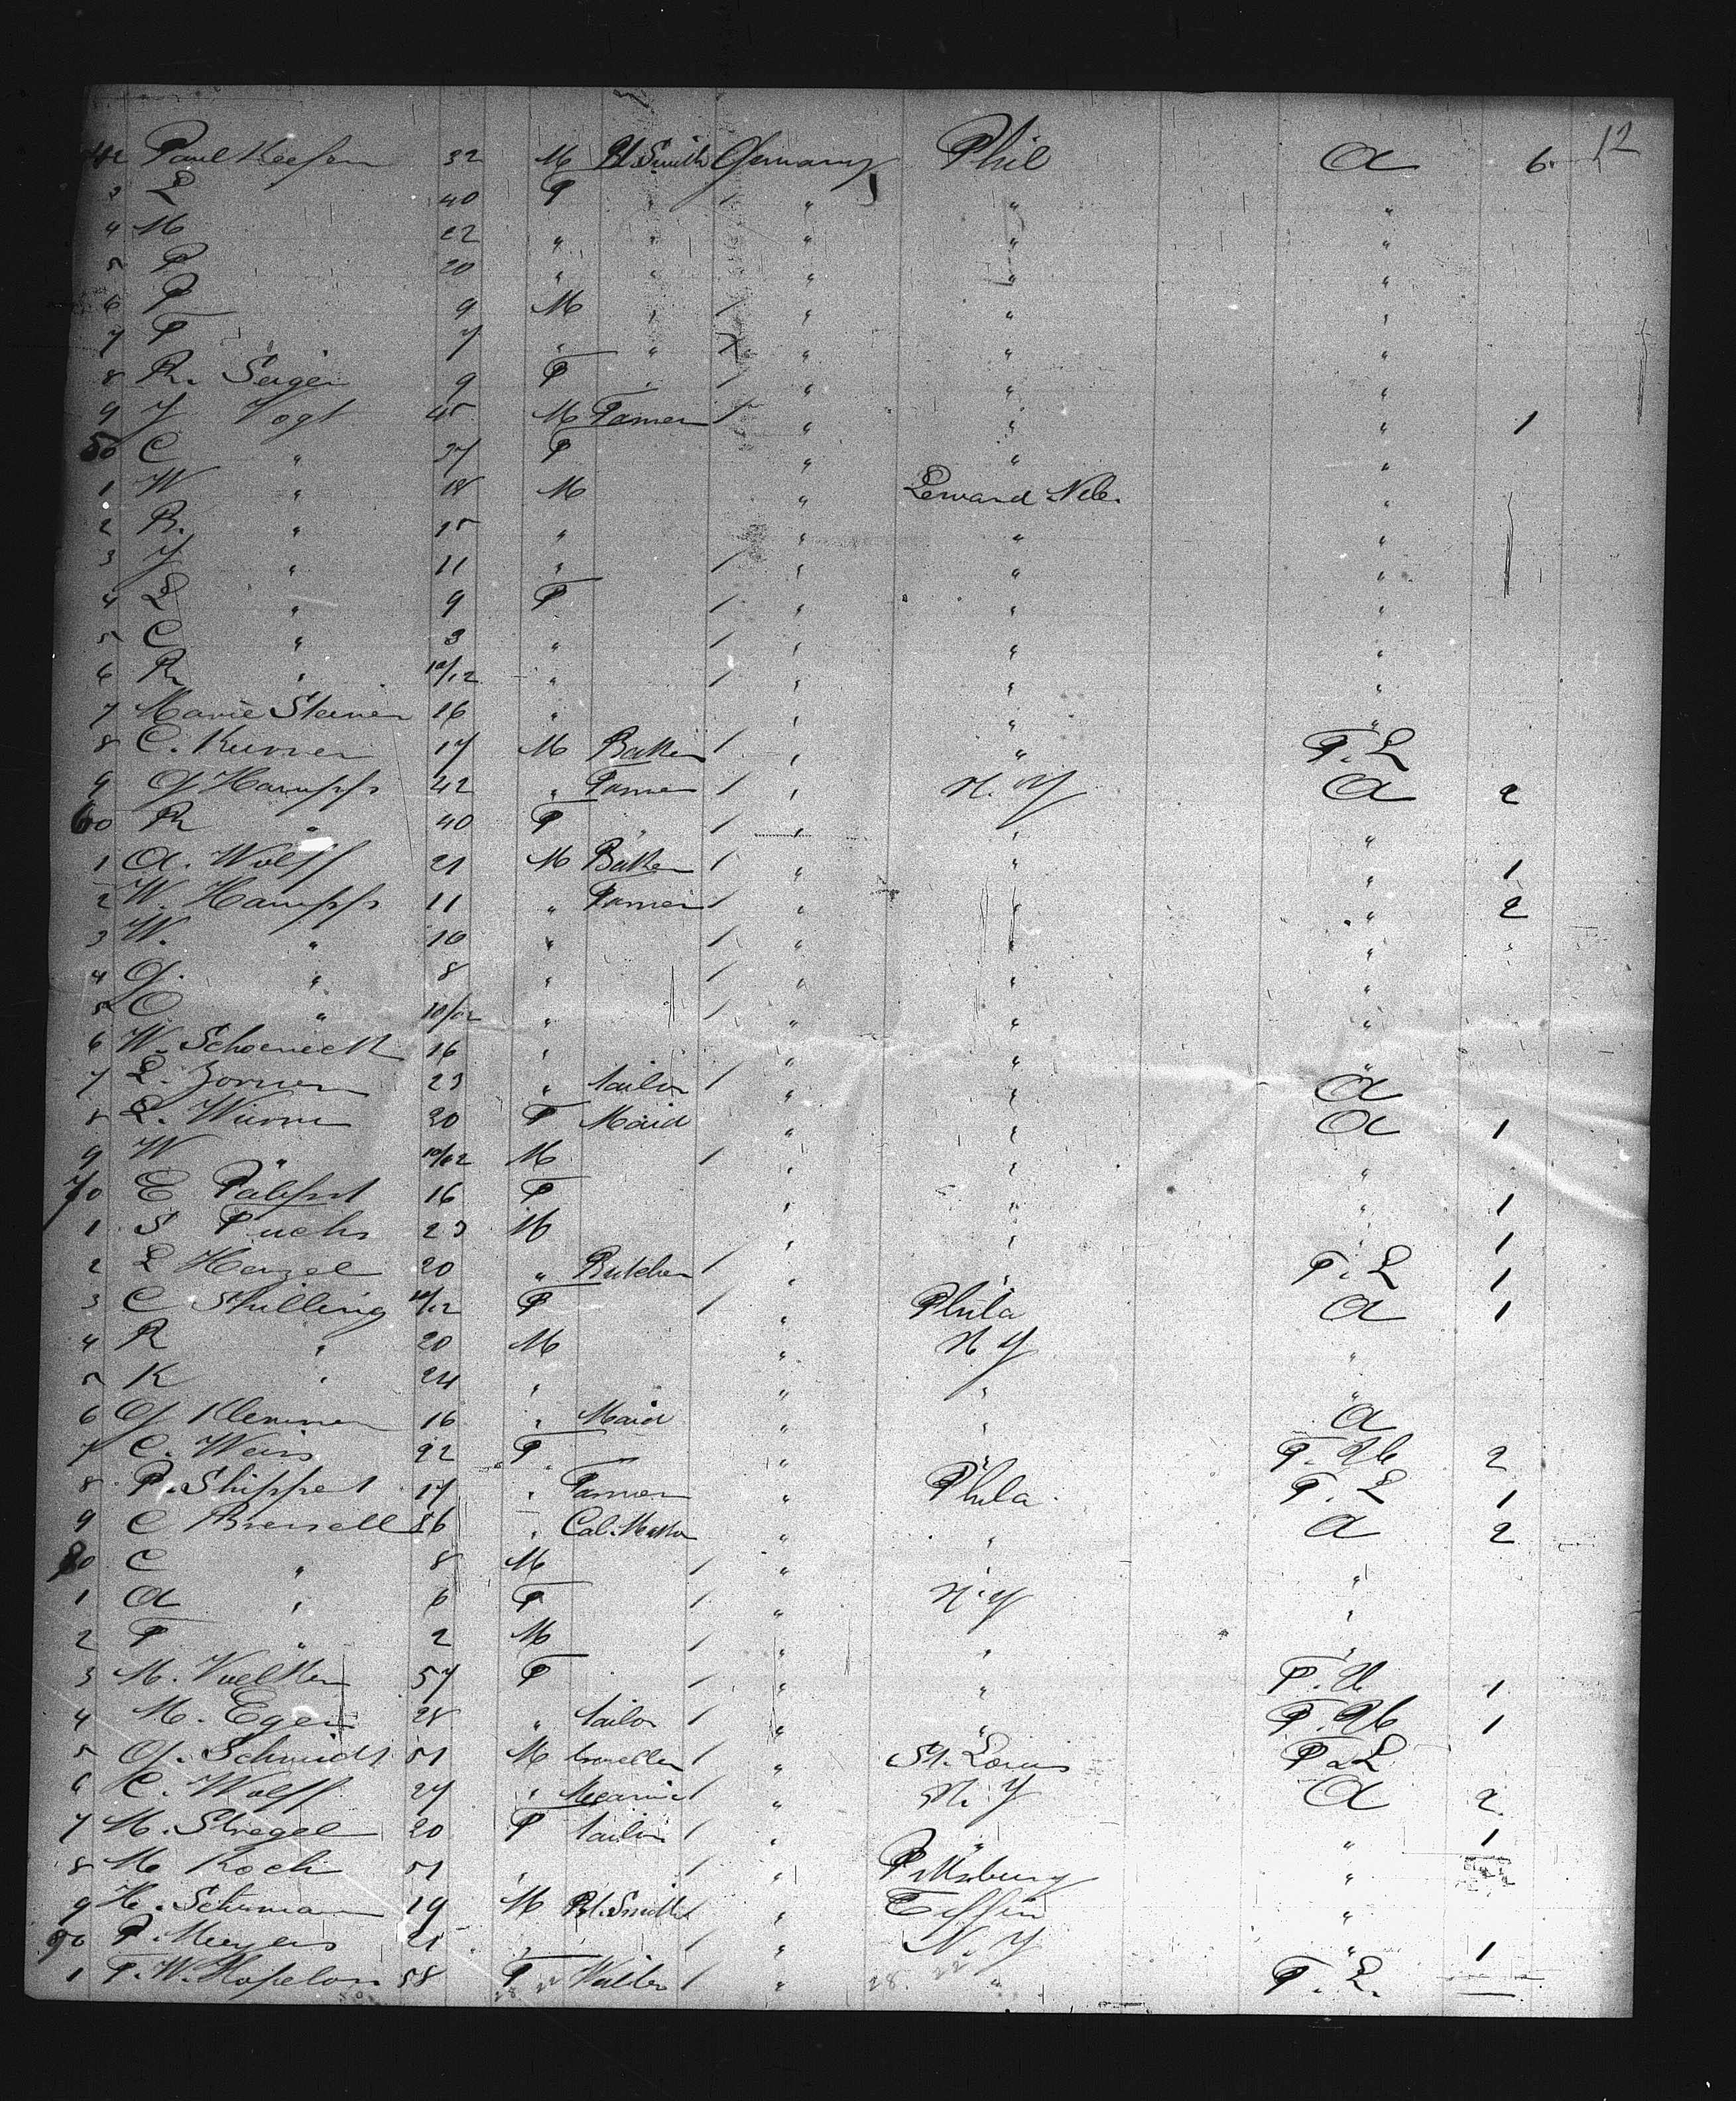 12
42 Paul Keefer 32 M Bl. Smith Germany Phil A 6
3 L 40 F " " "
4 M 22 " " " " "
5 P 20 " " " " "
6 P 9 M " " " "
7 F 7 " " " " "
8 R. Seiger 9 F " " " "
9 J Vogt 45 M Farmer " " " 1
50 C " 37 F " " "
1 W " 18 M " Leward Neb. "
2 R. " 15 " " " "
3 J " 11 " " " "
4 L " 9 F " " "
5 C " 3 " " " "
6 R " 10/12 " " " "
7 Marie Steiner 16 " " " "
8 C. Kurner 17 M Baker " " F. L
9 G Hampp 42 " Farmer " N. Y A 2
60 R " 40 F " " "
1 A. Wolff 21 M Baker " " " 1
2 W. Hampp 11 " Farmer " " " 2
3 W. " 10 " " " "
4 G. " 8 " " " "
5 " 10/12 " " " "
6 W. Schoeneck 16 " " " "
7 L. Zorner 23 " tailor " " A
8 L. Wurm 20 F Maid " " A 1
9 W " 10/12 M " " "
70 E 16 F " " " 1
1 S Fuchs 23 M " " " 1
2 L Henzel 20 " Butcher " " F. L 1
3 C Stilling 10/12 F " Phila A 1
4 R " 20 M " N Y "
5 K " 24 " " " "
6 G Klemmer 16 " Maid " " A
7 C. Weis 22 F " " F. 2
8 P. Shippet 17 " Farmer " Phila. F. L 1
9 C 36 " Cab. Maker " " A 2
80 C " 8 M " " "
1 A " 6 F " N. Y "
2 F " 2 M " " "
3 M. Voelker 57 F " " F. 1
4 M. Eger 28 " tailor " " F. 1
5 G. Schmidt 51 M traveller " St. Louis F. L
6 C. Wolff 27 " " N. Y A 2
7 M. Stregel 20 F tailor " " " 1
8 M Koch 51 " " Pittsburg "
9 H. Schuman 19 M Bl. Smith " Tiffin "
90 P. Meyers 21 " " N. Y " 1
1 F. W. 58 F " " F. L.